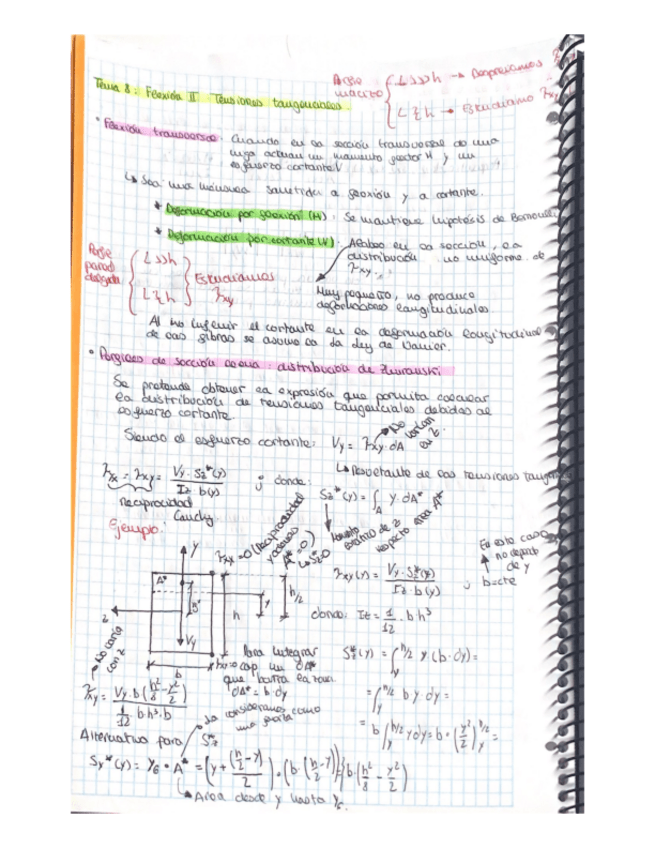 Tema 8: Flexión II. Tensiones tangenciales.
Perfil macizo
L>>>h → Despreciamos
L≷h → Estudiamos τxy
• Flexión transversal: Cuando en la sección transversal de una
viga actúan un momento flector M y un
esfuerzo cortante V
↳ Sea una ménsula sometida a flexión y a cortante.
* Deformación por flexión (M): Se mantiene hipótesis de Bernoulli
* Deformación por cortante (V): Alabeo en la sección, la
distribución no uniforme de
τxy.
Perfil pared delgada
L>>h
L≷h
Estudiamos
τxy
Muy pequeño, no produce
deformaciones longitudinales.
Al no influir el cortante en la deformación longitudinal
de las fibras se asume la ley de Navier.
• Pórgicos de sección llena: distribución de Zhuravski
Se pretende obtener la expresión que permita calcular
la distribución de tensiones tangenciales debidas al
esfuerzo cortante
Siendo el esfuerzo cortante: Vy = τxy·dA
No varían en z.
↳ Resultante de las tensiones
τyx = τxy = Vy·Sz*(y) / Iz·b(y) ; donde: Sz*(y) = ∫A y·dA*
Reciprocidad
Cauchy
Momento estático de z respecto área A*
Ejemplo:
τxy=0 (Reciprocidad
A*=0)
↳ Sz=0
τxy(y) = Vy·Sz*(y) / Iz·b(y) ; b=cte
En este caso
no depende
de y
y
A*
z
Vy
h
y
h/2
b
No varía
con z
donde: Iz = 1/12 · b h³
Para integrar
que barra el área.
dA* = b·dy
Sz*(y) = ∫y^h/2 y (b·dy) =
= ∫y^h/2 b y dy =
= b ∫y^h/2 y dy = b·(y²/2)y^h/2 =
τxy = Vy·b(h²/8 - y²/2) / 1/12 b·h³·b
Lo consideramos como
una
Alternativa para Sz*
Sy*(y) = yG · A* = (y + (h/2 - y)/2) · (b·(h/2 - y)) = b(h²/8 - y²/2)
↳ Área desde y hasta yG.